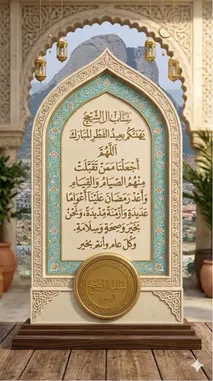 بنات ال الشيخ
يهنئكم بعيد الفطر المبارك
اللهم
أجعلنا ممن تقبلت
منهم الصيام والقيام
وأعد رمضان علينا أعواما
عديدة وأزمنة مديدة، ونحن
بخير وصحة وسلامة.
وكل عام وأنتم بخير